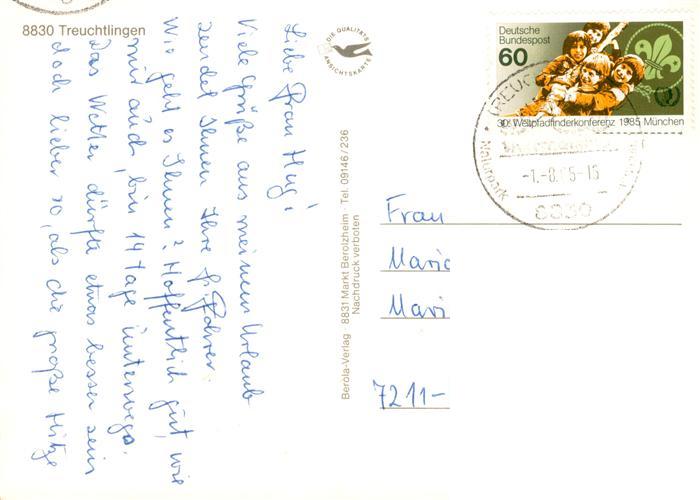 8830 Treuchtlingen
Liebe Frau Hug!
Viele Grüße aus meinem Urlaub
sendet Ihnen Ihre
Wie geht es Ihnen? Hoffentlich gut, wie
mir auch, bin 14 Tage unterwegs.
Das Wetter dürfte etwas besser sein
doch lieber so, als die große Hitze
DIE QUALITÄTS
ANSICHTSKARTE
Beröla-Verlag 8831 Markt Berolzheim · Tel. 09146/236
Nachdruck verboten
Deutsche
Bundespost
60
30. Weltpfadfinderkonferenz 1985 München
TREUC
Naturpark
-1.-8. 85-16
8830
Frau
Marie
Mari
7211-